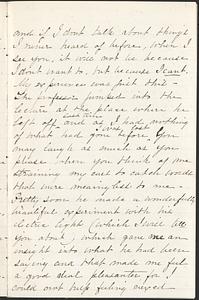 and if I don't talk about things
I never heard of before, when I
see you, it will not be because
I don't want to, but because I can't.
My experience was just this -
The professor jumped into the
lecture at the place where he
left off
and as I had nothing
of what had gone before
You
may laugh as much as you
please when you think of me
straining my ears to catch words
that were meaningless to me -
Pretty soon he made a wonderfully
beautiful experiment with the
electric light (which I will tell
you about) which gave me an
insight into what he had been
saying and that made me feel
a good deal pleasanter for I
could not help feeling vexed